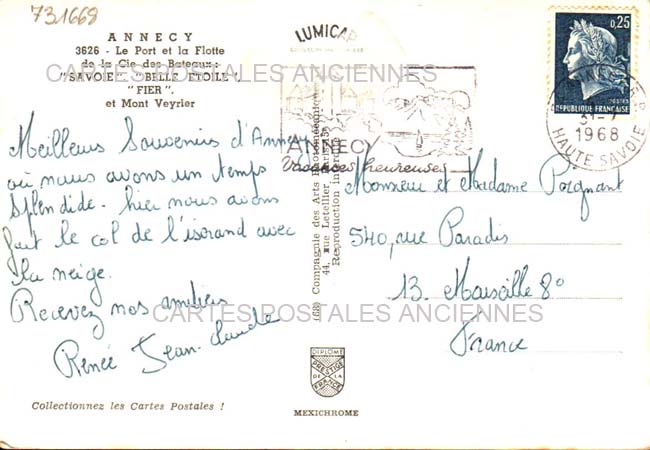 731668
ANNECY
3626 - Le Port et la Flotte
de la Cie des Bateaux :
"SAVOIE" - "BELLE ETOILE",
"FIER".
et Mont Veyrier
LUMICAP
0,25
POSTES
RÉPUBLIQUE FRANÇAISE
31-7
1968
HAUTE SAVOIE
ANNECY
vacances heureuses
CARTES POSTALES ANCIENNES
Meilleurs Souvenirs d'Annecy
où nous avons un temps
splendide. hier nous avons
fait le col de l'iserand avec
la neige.
Recevez nos amitiés
Renée Jean-Claude
(66) Compagnie des Arts Photomécaniques
44, rue Letellier, Paris-15e
Reproduction interdite
Monsieur et Madame Poignant
540, rue Paradis
13. Marseille 8°
France
CARTES POSTALES ANCIENNES
DIPLOME
PRESTIGE
DE LA
FRANCE
Collectionnez les Cartes Postales !
MEXICHROME